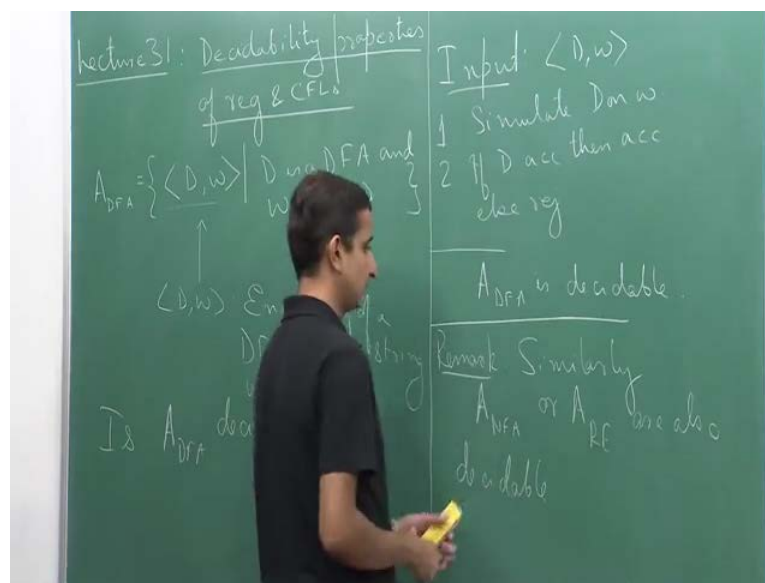 Lecture 31: Decidability properties
of reg & CFLs
A_DFA = { ⟨D, w⟩ | D is a DFA and
w }
⟨D, w⟩ :
string
Is A_DFA
Input: ⟨D, w⟩
1 Simulate D on w
2 If D acc then acc
else rej
A_DFA is decidable.
Remark Similarly
A_NFA or A_RE are also
decidable